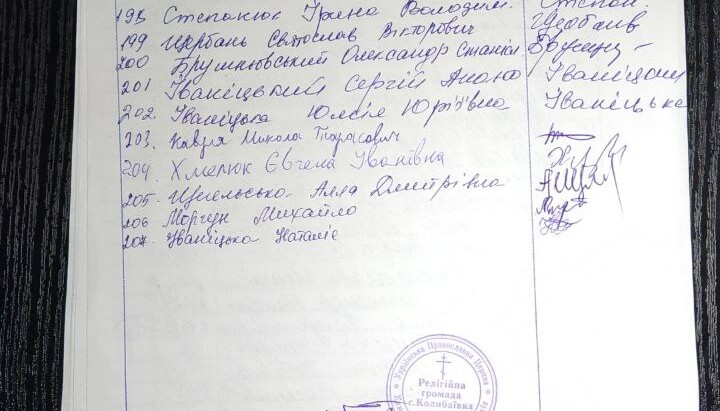 198 Степанюк Ірина Володим. Степан.
199 Щербань Святослав Вікторович Щербань
200 Брушнювський Олександр Станісл.
201 Іваніцький Сергій Іваніцький
202. Іваніцька Юлія Юріївна Іваніцька
203. Микола Тарасович
204. Хмелюк Євгена Іванівна
205. Алла Дмитрівна
206 Моргун Михайло
207. Іваніцька Наталіє
Українська Православна Церква
Релігійна
громада
с.Колибаївка